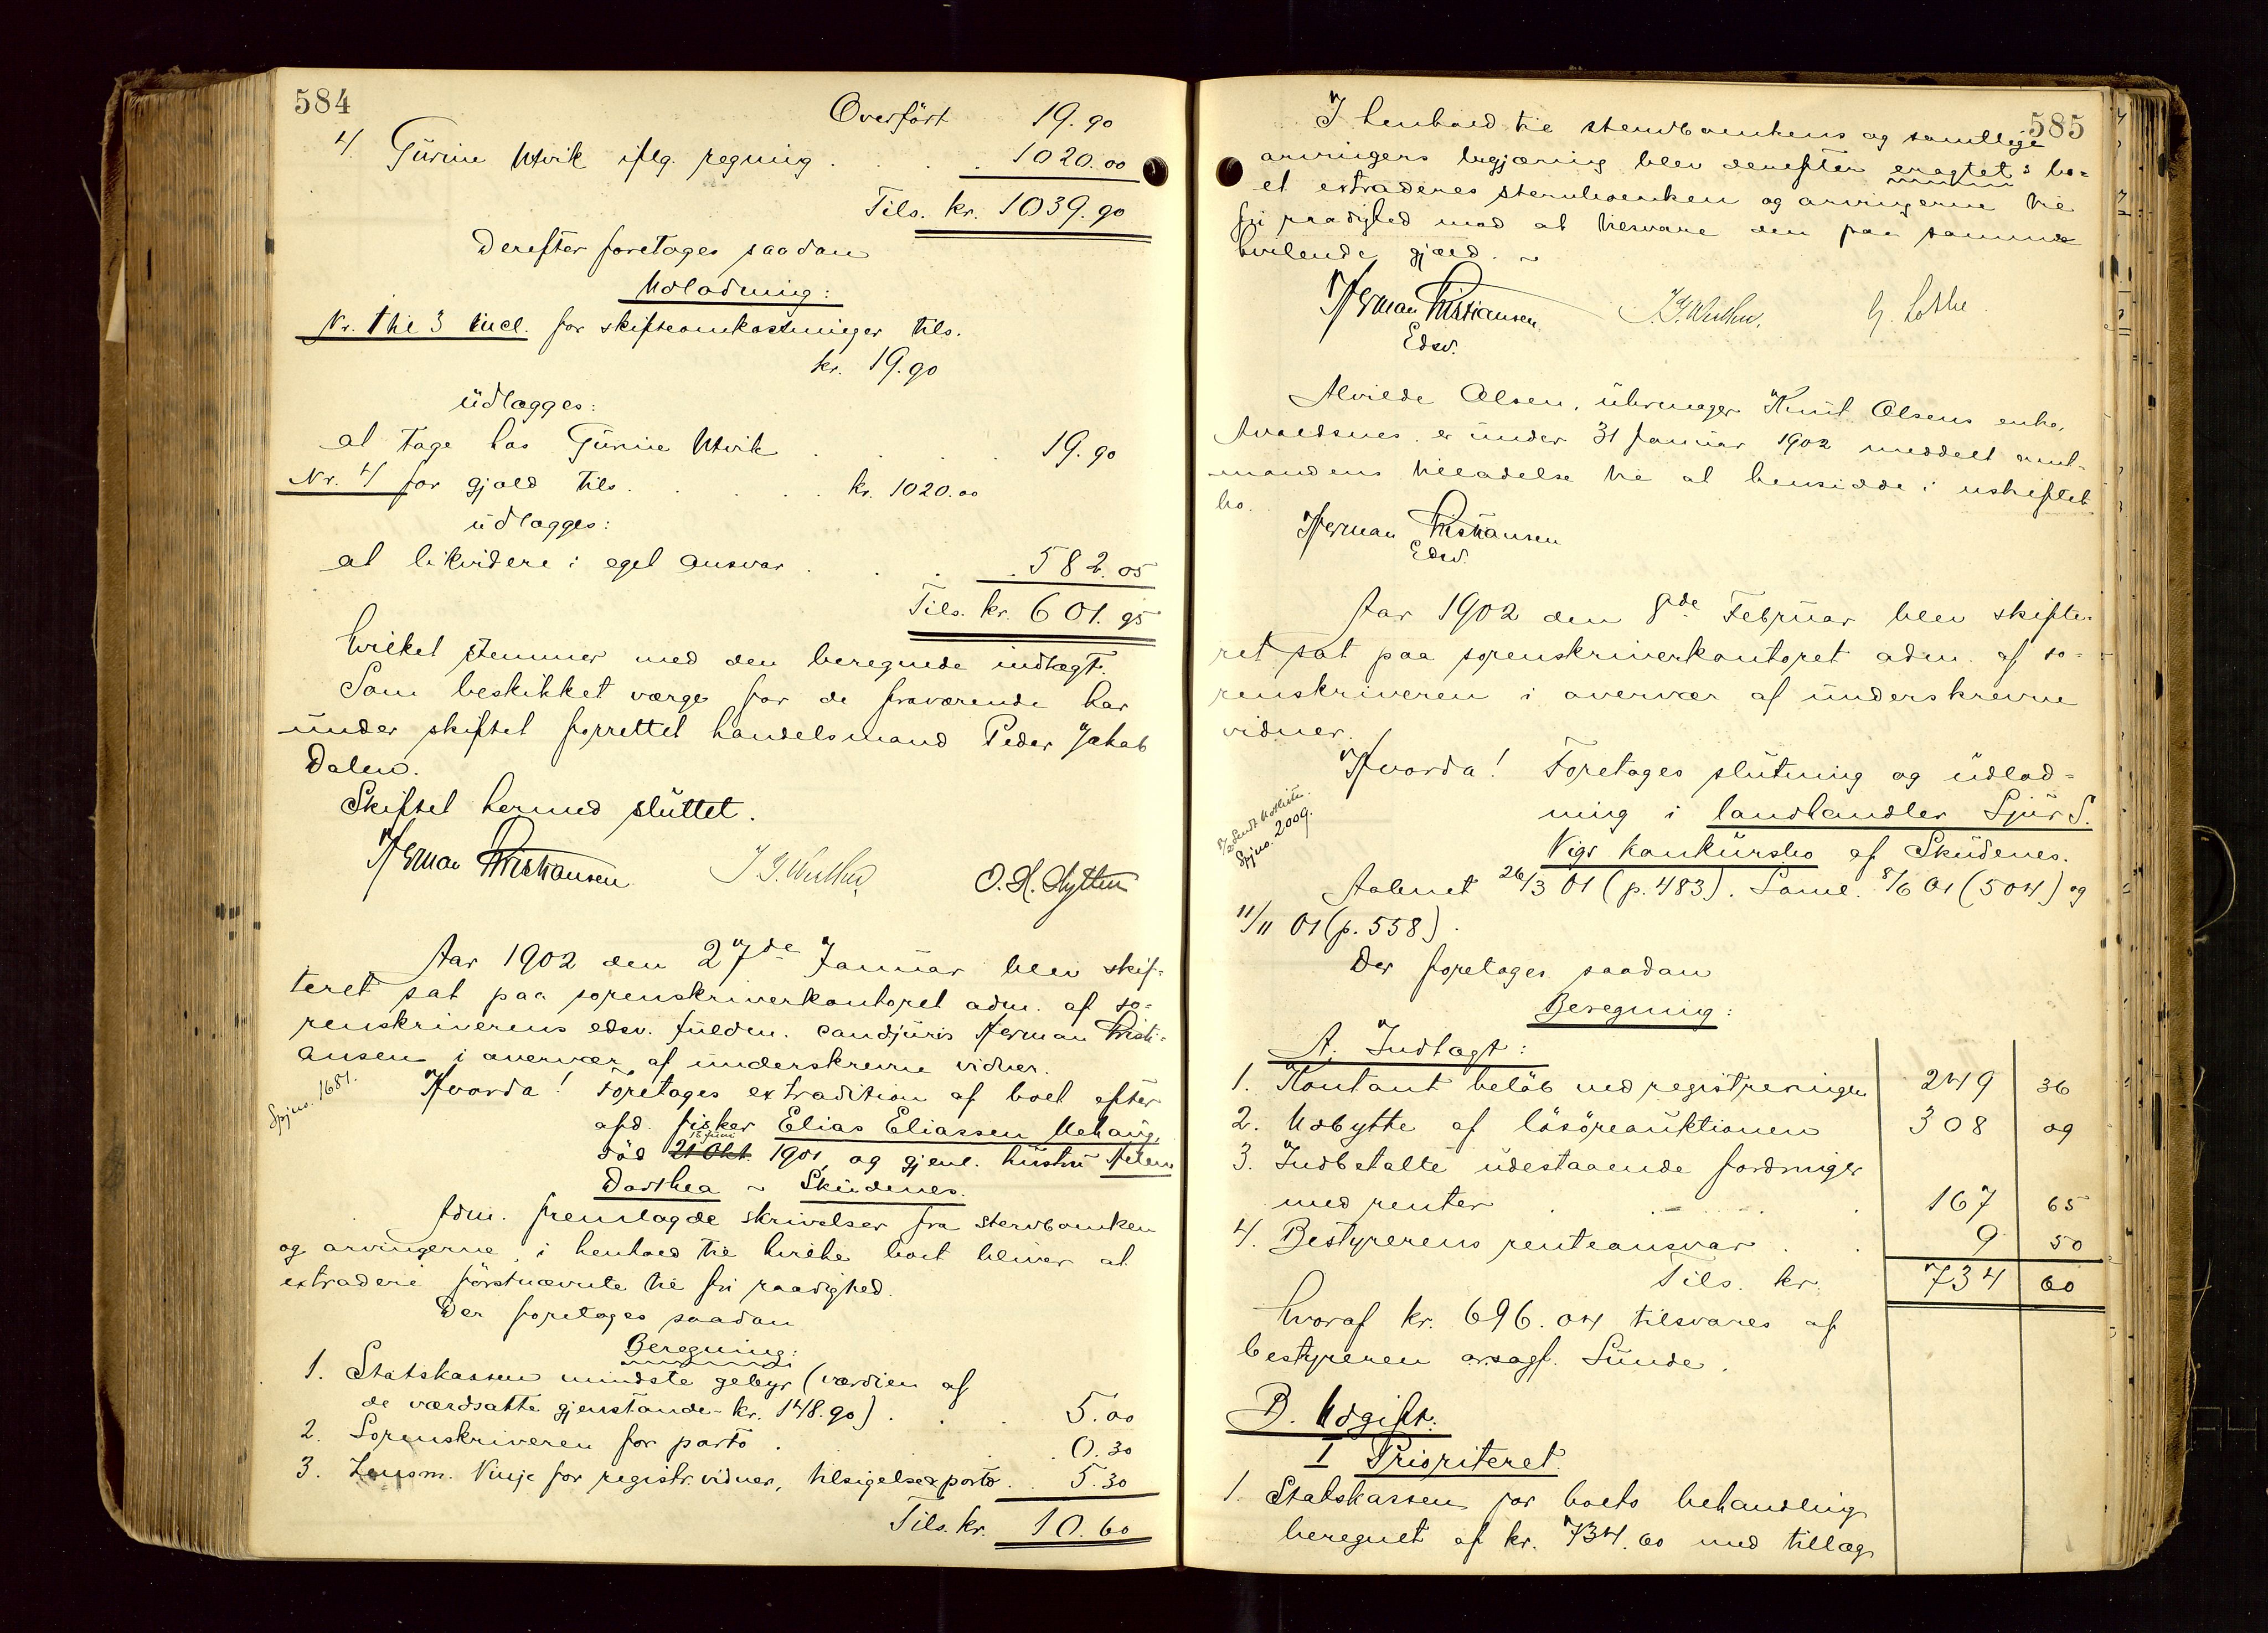 584
Overført 19.90
4. Gurine Utvik iflg. regning . . . . 1020.00
Tils. kr. 1039.90
Derefter foretages saadan
Udlodning:
Nr. 1 til 3 incl. for skifteomkostninger tils.
kr. 19.90
udlægges:
at tage hos Gurine Utvik . . . . 19.90
Nr. 4 for gjæld tils. . . . . kr. 1020.00
udlægges:
at likvidere i eget ansvar . . . . 582.05
Tils. kr. 601.95
hvilket stemmer med den beregnede indtægt.
Som beskikket værge for de fraværende har
under skiftet forrettet handelsmand Peder Jakob
Dalen.
Skiftet hermed sluttet.
Herman Kristiansen
Aar 1902 den 27de Januar blev skif-
teret sat paa sorenskriverkontoret adm. af so-
renskriverens edsv. fuldm. cand juris Herman Kristi-
ansen i overvær af underskrevne vidner.
Spjno. 1681.
Hvorda! Foretages extradition af boet efter
afd. fisker Elias Eliassen Mehaug,
18 Juni
død 21 Okt. 1901, og gjenl. hustru Helene
Dorthea ~ Skudenes.
Adm. fremlagde skrivelser fra stervboenken
og arvingerne, i henhold til hvilke boet bliver at
extradere førstnævnte til fri raadighed.
Der foretages saadan
Beregning:
1. Statskassen mindste gebyr (værdien af
de værdsatte gjenstande - kr. 148.90) . . . 5.00
2. Sorenskriveren for porto . . . 0.30
3. Lensm. Vinje for registr. vidner, tilsigelse & porto . . 5.30
Tils. kr. 10.60
585
I henhold til stervboenkens og samtlige
arvingers begjæring blev derefter eragtet: bo-
et extraderes stervboenken og arvingerne til
fri raadighed mod at tilsvare den paa samme
hvilende gjæld. ~
Herman Kristiansen
Edsv.
G. Lothe
Alvilde Olsen, uhrmager Knut Olsens enke,
Avaldsnes er under 31 Januar 1902 meddelt amt-
mandens tilladelse til at hensidde i uskiftet
bo.
Herman Kristiansen
Edsv.
Aar 1902 den 8de Februar blev skifte-
ret sat paa sorenskriverkontoret adm. af so-
renskriveren i overvær af underskrevne
vidner.
Spjno. 2009.
Hvorda! Foretages slutning og udlod-
ning i landhandler Sjur S.
Vigs konkursbo af Skudenes.
Aabnet 26/3 01 (p. 483). Saml. 8/6 01 (504) og
11/11 01 (p. 558).
Der foretages saadan
Beregning:
A. Indtægt:
1. Kontant beløb ved registreringen 249 36
2. Udbytte af løsøreauktionen 308 09
3. Indbetalte udestaaende fordringer
med renter . . . 167 65
4. Bestyrerens renteansvar . . 9 50
Tils. kr. 734 60
hvoraf kr. 696.04 tilsvares af
bestyreren o.r.sagf. Sunde.
B. Udgift.
I Prioriteret.
1. Statskassen for boets behandling
beregnet af kr. 734.60 med tillæg